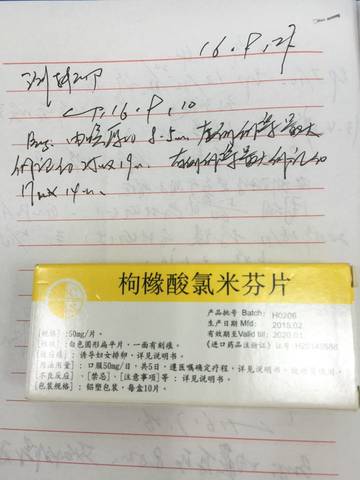 16.8.27
16.8.10
内膜厚约 8.5mm 左侧卵巢最大
卵泡约 25x19mm 右侧卵巢最大卵泡约
17x14mm
枸橼酸氯米芬片
产品批号 Batch: H0206
生产日期 Mfd: 2015.02.
有效期至Valid till: 2020.01
《进口药品注册证》证号:
[规格]:50mg/片。
[性状]:白色圆形扁平片,一面有刻痕。
[适应症]:诱孕妇女排卵,详见说明书。
[用法用量]:口服50mg/日,共5日,遵医嘱确定疗程,详见说明书,
[不良反应]、[禁忌]、[注意事项]等:详见说明书。
[包装规格]:铝塑包装,每盒10片。